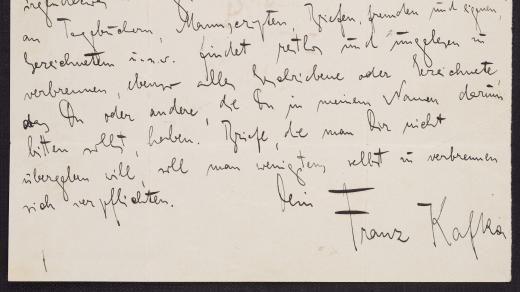 an Tagebüchern, Manuscripten, Briefen, fremden und eignen,
Gezeichnetem u.s.w. findet restlos und ungelesen zu
verbrennen, ebenso alles Geschriebene oder Gezeichnete,
das Du oder andere, die Du in meinem Namen darum
bitten sollst, haben. Briefe, die man Dir nicht
übergeben will, soll man wenigstens selbst zu verbrennen
sich verpflichten.
Dein
Franz Kafka